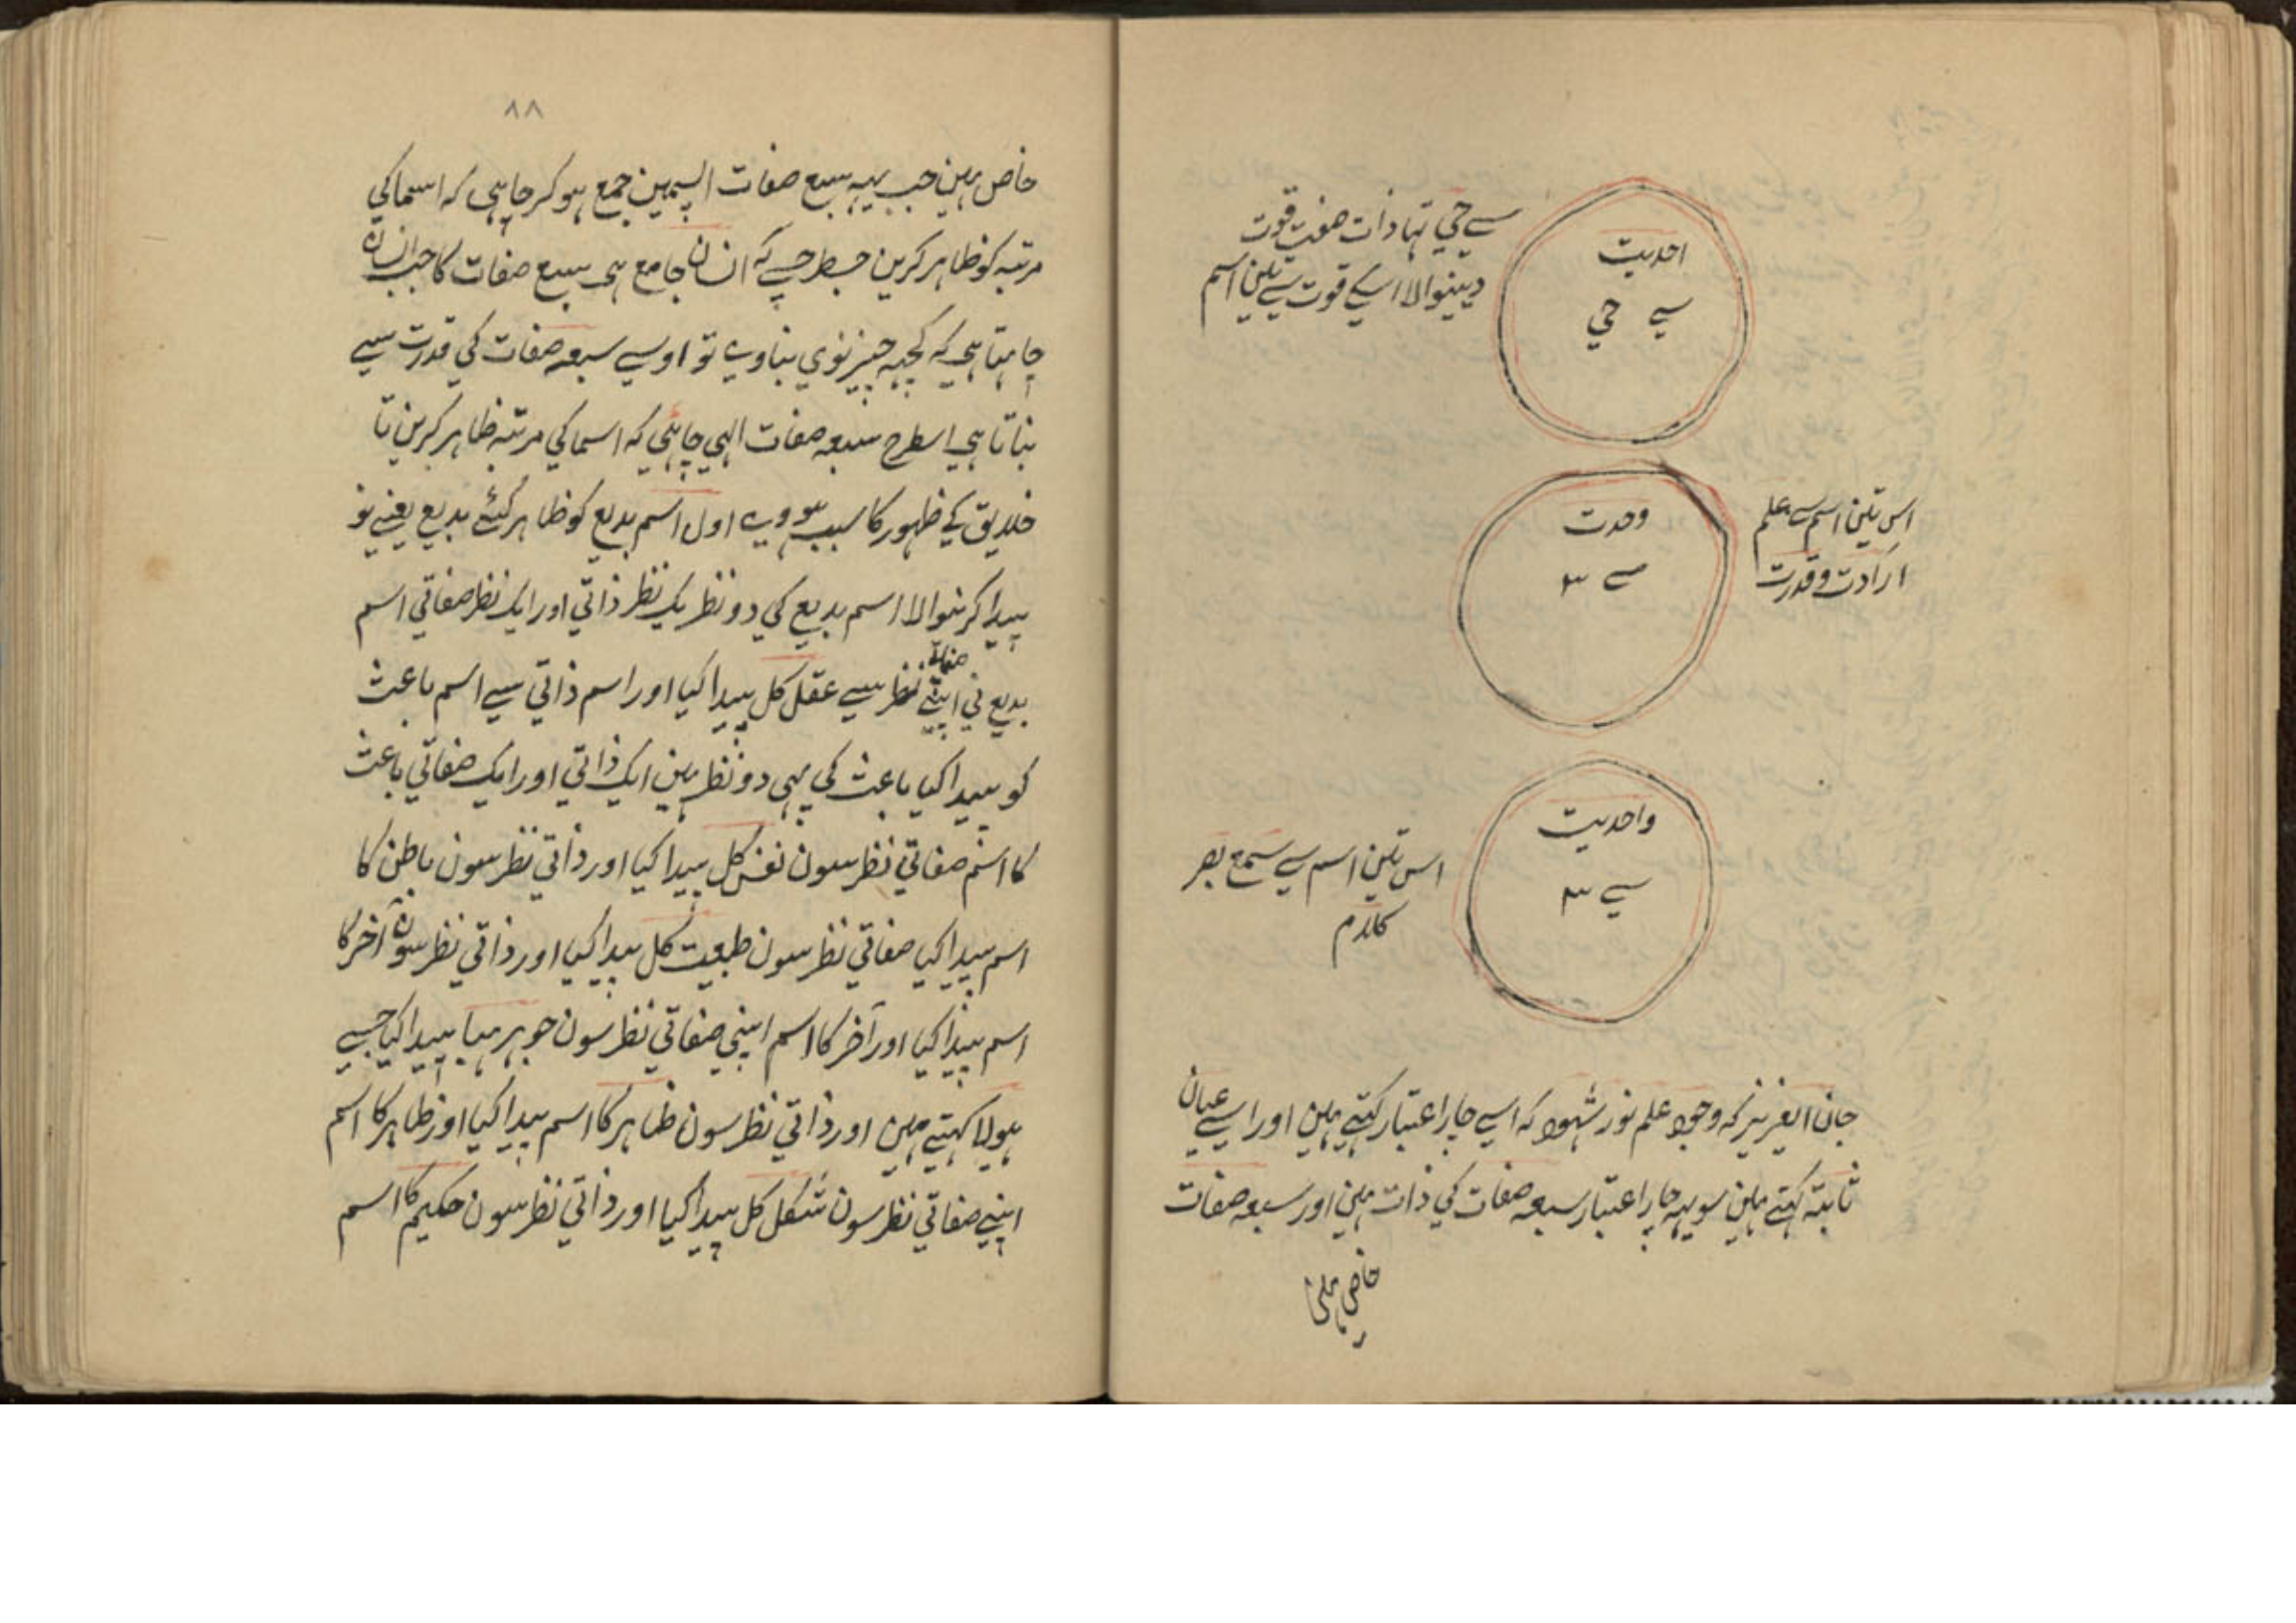 احدیت
سے حي
سے حي تہا ذات صفت قوت
دینوالا اسکے قوت سے تین اسم
وحدت
سے ۳
اس تین اسم سے علم
ارادت و قدرت
واحدیت
سے ۳
اس تین اسم سے سمع بصر
کلام
جان ایعزیز کہ وجود علم نور شہود کہ اسے چار اعتبار کہتے ہین اور اسے عیان
ثابتہ کہتے ہین سو یہہ چار اعتبار سبعہ صفات کي ذات ہین اور سبعہ صفات
خاص ہین
۸۸
خاص ہین جب یہہ سبع صفات اپسمین جمع ہو کر چاہی کہ اسما کي
مرتبہ کو ظاہر کرین جسطرح سے کہ انسان جامع ہی سبع صفات کا جب انسان
چاہتا ہي کہ کچہہ چیز نوي بناوے تو اوسے سبعہ صفات کي قدرت سے
بناتا ہي اسطرح سبعہ صفات الہي چاہئي کہ اسما کي مرتبہ ظاہر کرین تا
خلایق کے ظہور کا سبب ہووے اول اسم بدیع کو ظاہر کئے بدیع یعنے نو
پیدا کرنہوالا اسم بدیع کي دو نظر یک نظر ذاتي اور ایک نظر صفاتي اسم
بدیع ني اپنے صفاتي نظر سے عقل کل پیدا کیا اور اسم ذاتي سے اسم باعث
کو پیدا کیا باعث کي بہي دو نظر ہین ایک ذاتي اور ایک صفاتي باعث
کا اسم صفاتي نظر سون نفس کل پیدا کیا اور ذاتي نظر سون باطن کا
اسم پیدا کیا صفاتي نظر سون طبیعت کل پیدا کیا اور ذاتي نظر سون آخر کا
اسم پیدا کیا اور آخر کا اسم اپني صفاتي نظر سون جوہر ہبا پیدا کیا جسے
ہیولا کہتے ہین اور ذاتي نظر سون ظاہر کا اسم پیدا کیا اور ظاہر کا اسم
اپنے صفاتي نظر سون شکل کل پیدا کیا اور ذاتي نظر سون حکیم کا اسم